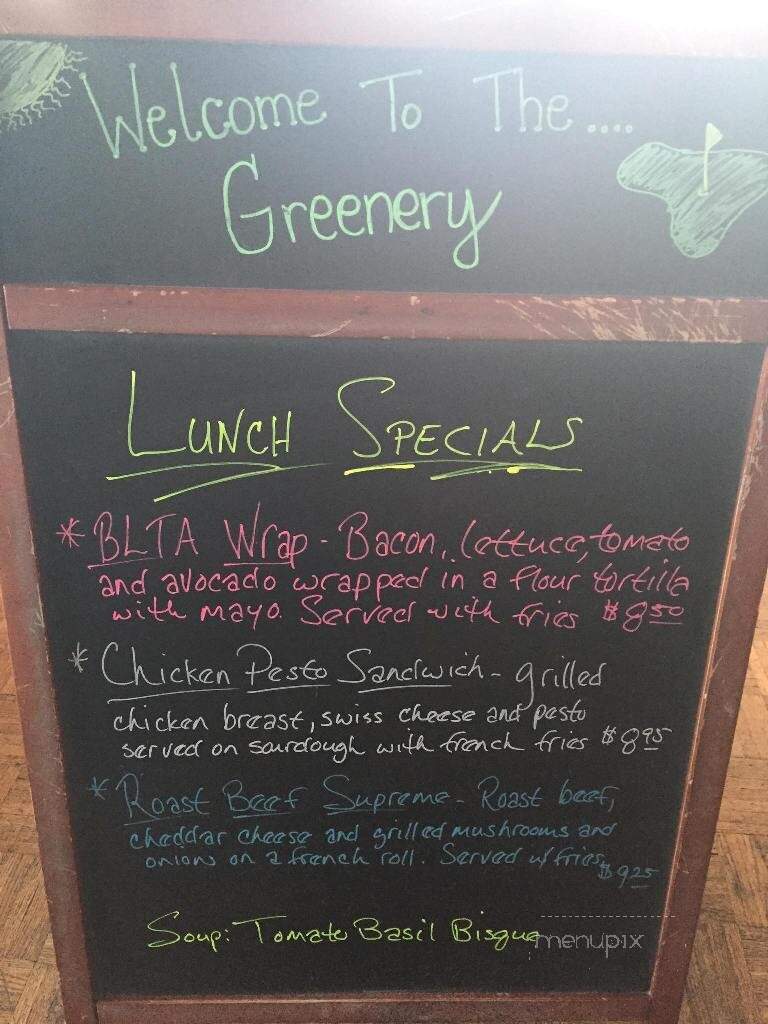 Welcome To The ....
Greenery
LUNCH SPECIALS
* BLTA Wrap - Bacon, lettuce, tomato
and avocado wrapped in a flour tortilla
with mayo. Served with fries $8.50
* Chicken Pesto Sandwich - grilled
chicken breast, swiss cheese and pesto
served on sourdough with french fries $8.95
* Roast Beef Supreme - Roast beef,
cheddar cheese and grilled mushrooms and
onions on a french roll. Served w/ fries $9.25
Soup: Tomato Basil Bisque
menupix